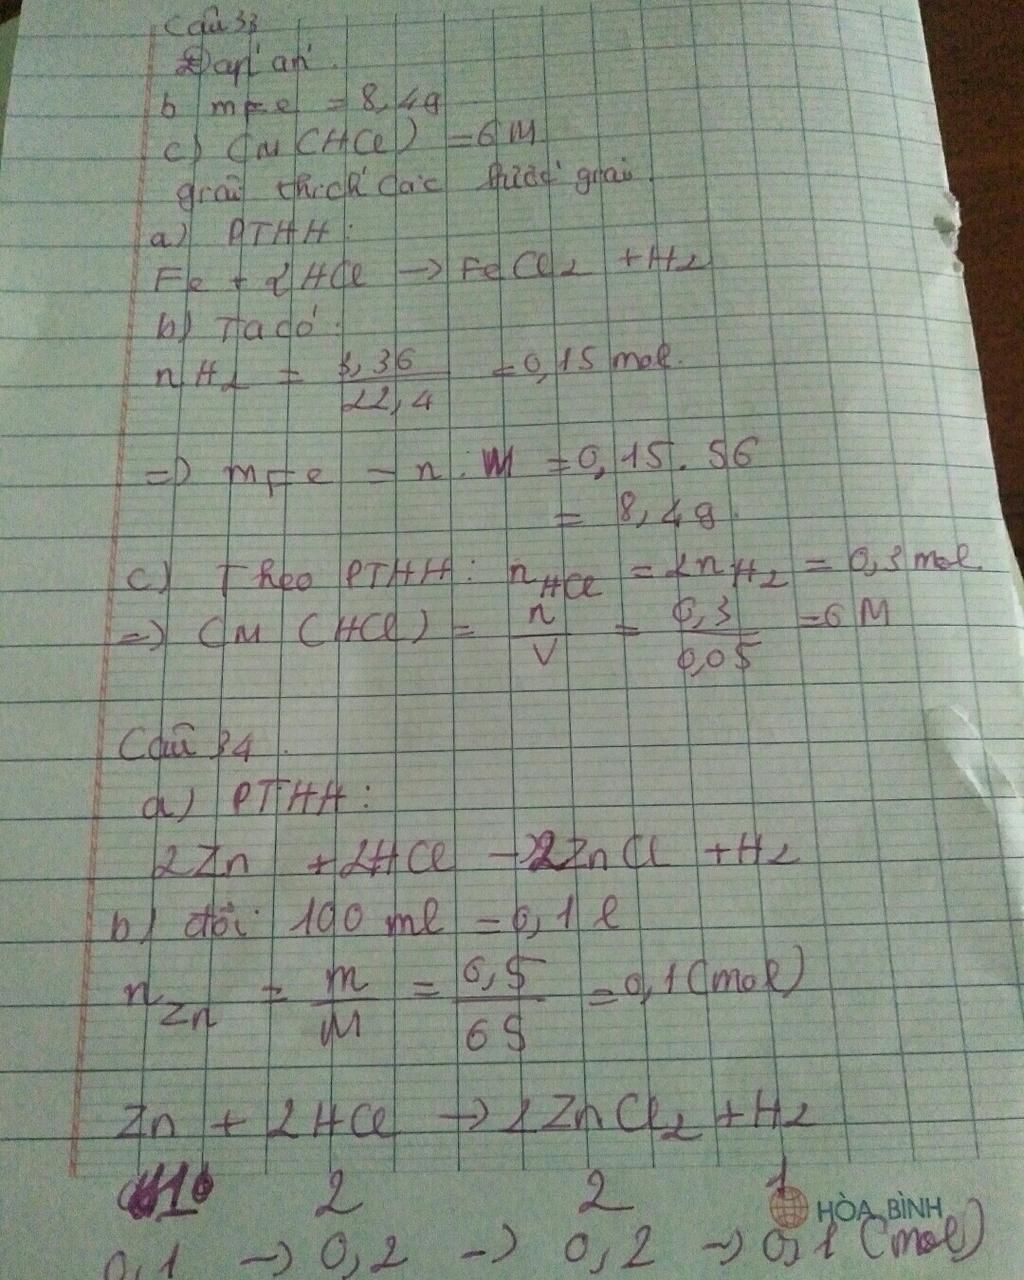 Câu 33
Đáp án.
b mFe = 8,4g
c) CM (HCl) = 6M
giải thích các bước giải
a) PTHH:
Fe + 2HCl -> FeCl2 + H2
b) Ta có:
nH2 = 3,36/22,4 = 0,15 mol.
=> mFe = n . M = 0,15 . 56
= 8,4g
c) Theo PTHH: nHCl = 2nH2 = 0,3 mol
=> CM (HCl) = n/V = 0,3/0,05 = 6M
Câu 34.
a) PTHH:
2Zn + 2HCl -> 2ZnCl + H2
b) đổi: 100 ml = 0,1 l
nZn = m/M = 6,5/65 = 0,1 (mol)
Zn + 2HCl -> 2ZnCl2 + H2
1 2 2 1
HÒA BÌNH
0,1 -> 0,2 -> 0,2 -> 0,1 (mol)